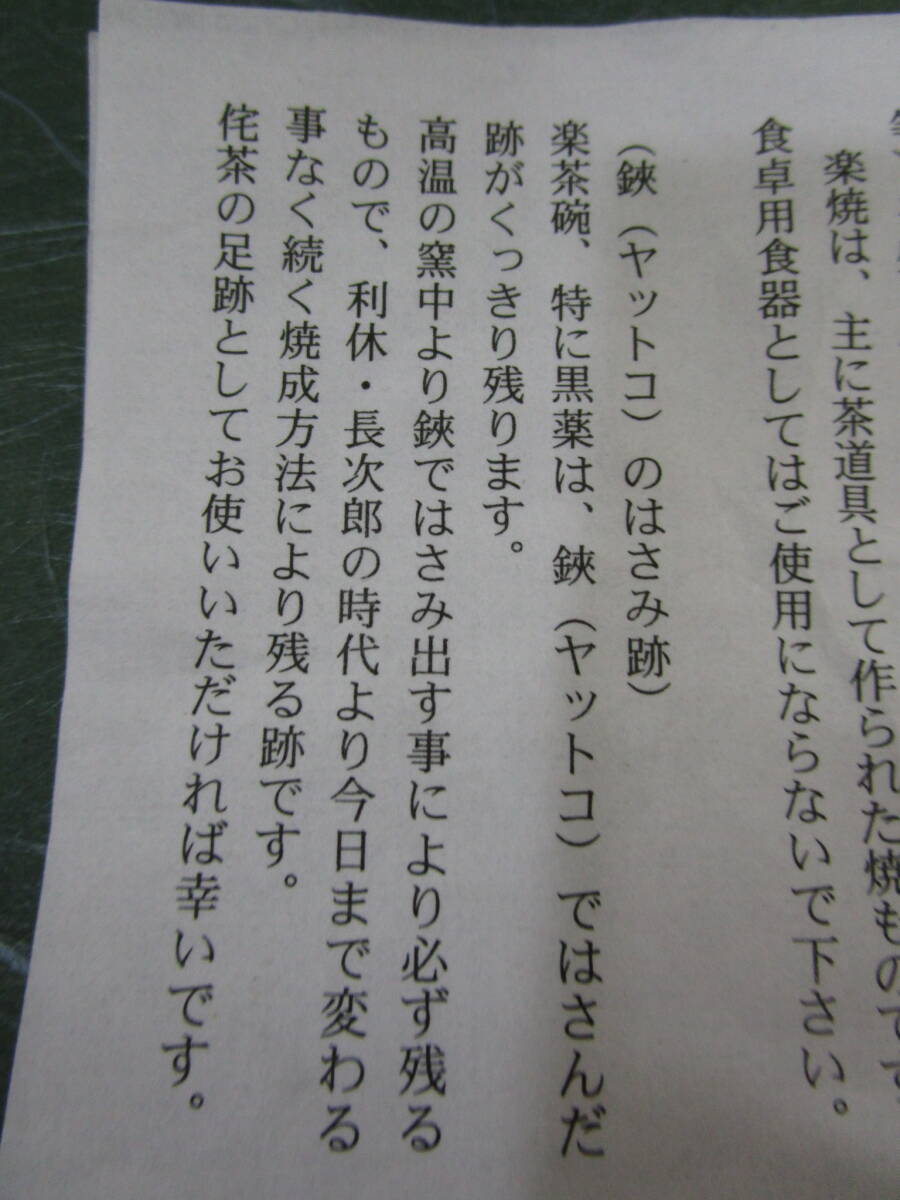 楽焼は、主に茶道具として作られた焼ものです。
食卓用食器としてはご使用にならないで下さい。
（鋏（ヤットコ）のはさみ跡）
楽茶碗、特に黒薬は、鋏（ヤットコ）ではさんだ
跡がくっきり残ります。
高温の窯中より鋏ではさみ出す事により必ず残る
もので、利休・長次郎の時代より今日まで変わる
事なく続く焼成方法により残る跡です。
侘茶の足跡としてお使いいただければ幸いです。